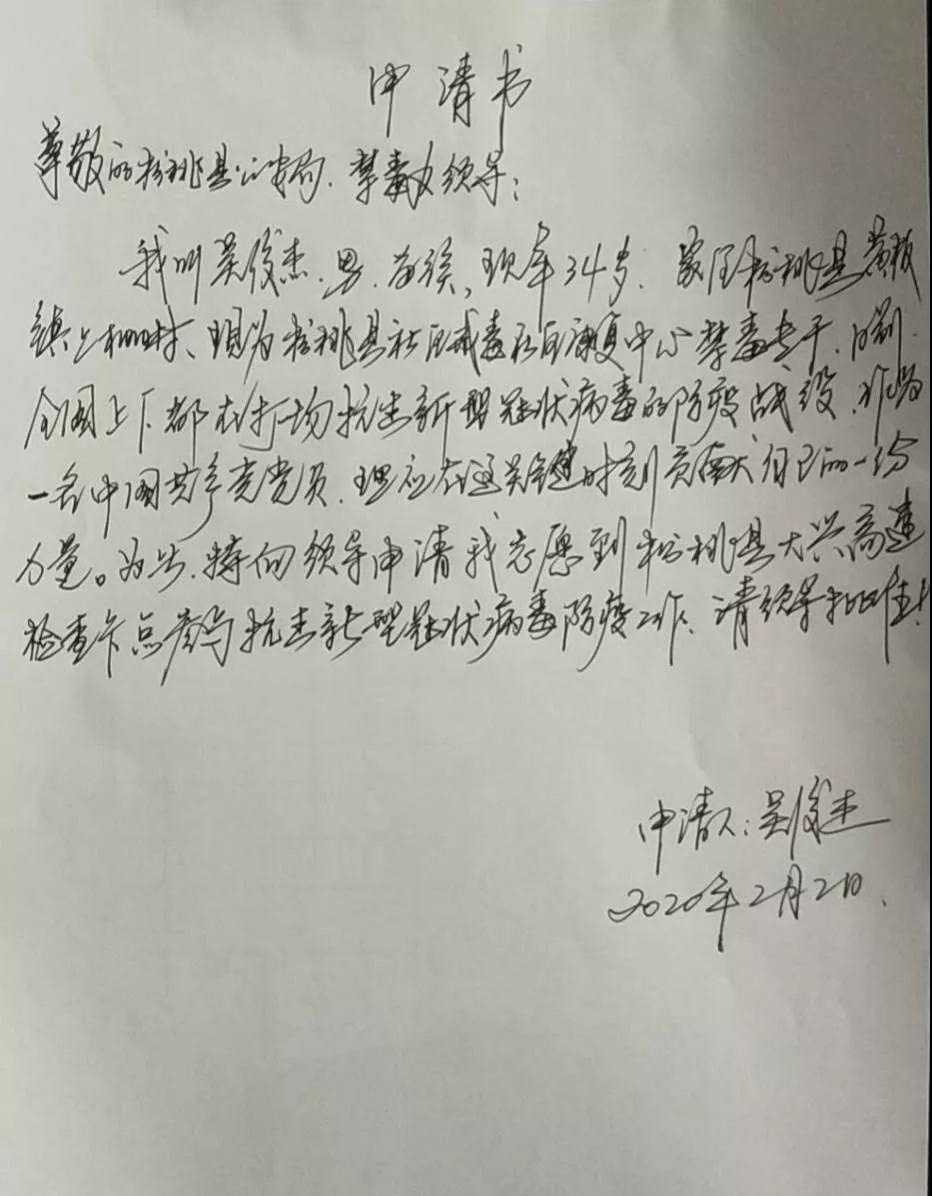 申请书
尊敬的松桃县公安局、禁毒办领导：
我叫吴俊杰，男，苗族，现年34岁，家住松桃县黄板
镇上村，现为松桃县社区戒毒社区康复中心禁毒专干，目前，
全国上下都在打场抗击新型冠状病毒的防疫战役，作为
一名中国共产党党员，理应在这关键时刻贡献自己的一份
力量。为此，特向领导申请我志愿到松桃县大兴高速
检查卡点参与抗击新型冠状病毒防疫工作，请领导批准！
申请人：吴俊杰
2020年2月2日